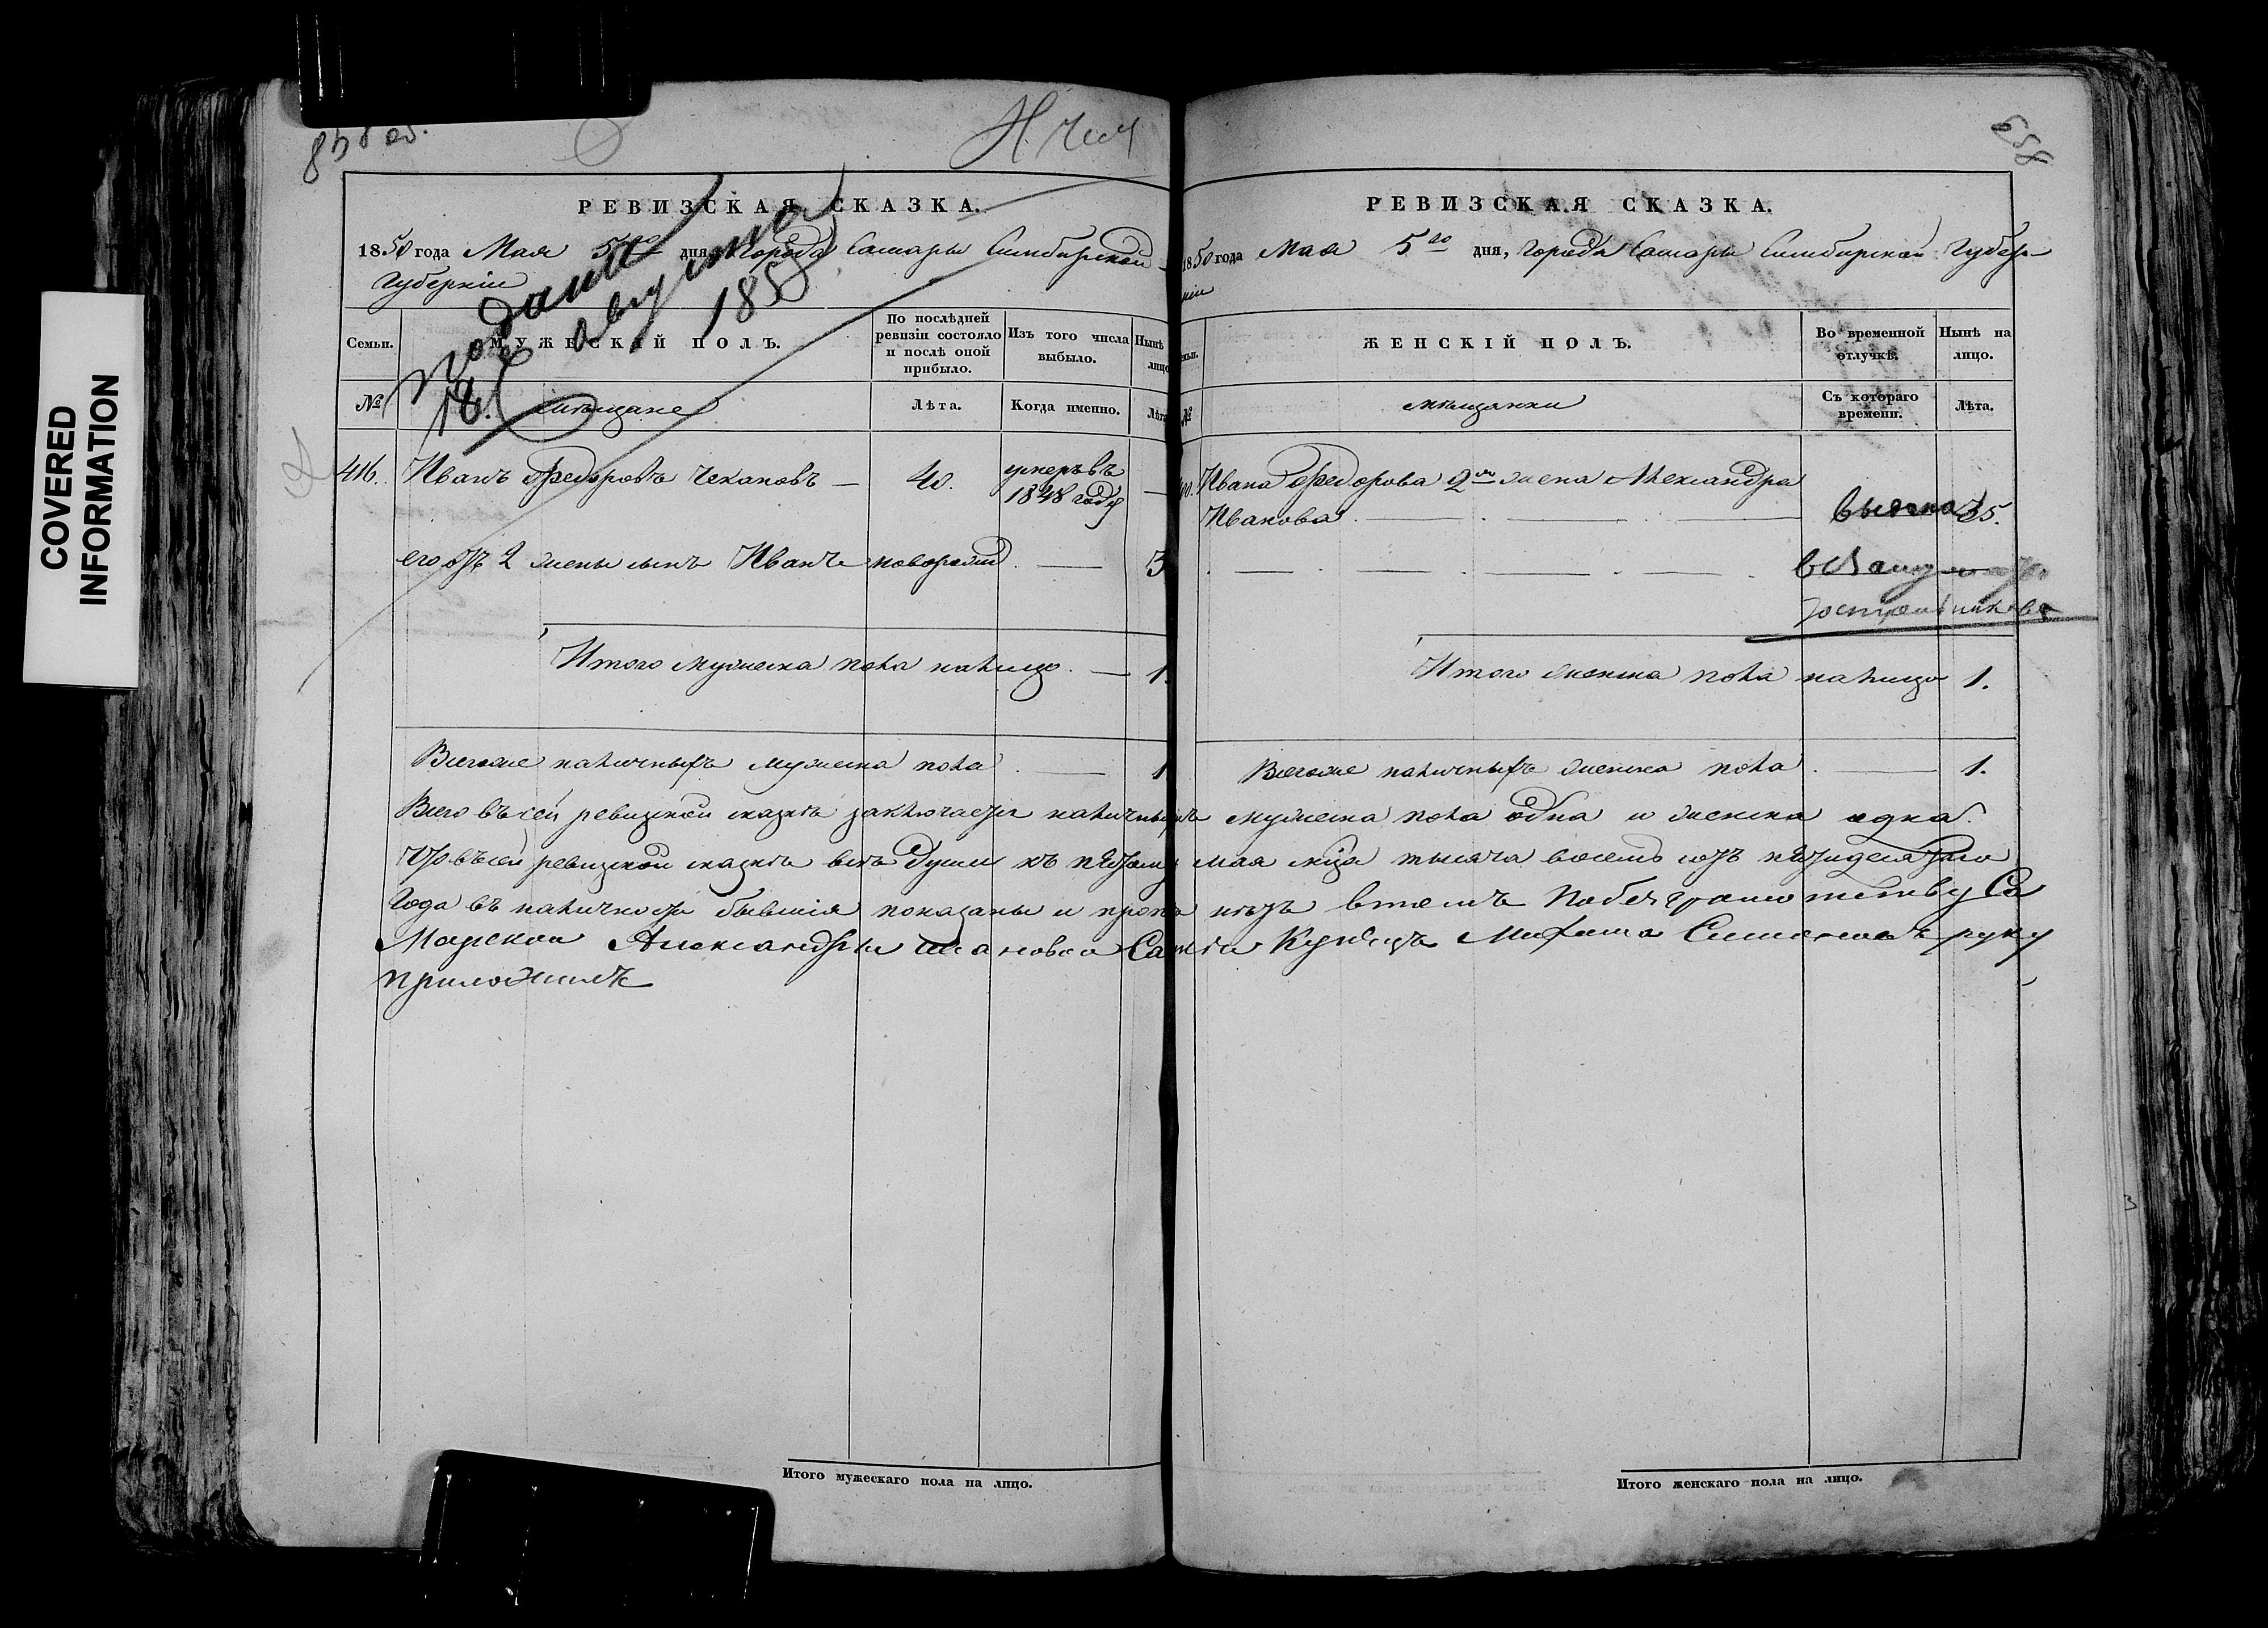 COVERED
INFORMATION
Н. Чек
РЕВИЗСКАЯ СКАЗКА.
1850 года Мая 5го дня, Города Самары Симбирской
Губернiи
подана
18 августа
1850
Семьи.
МУЖЕСКIЙ ПОЛЪ.
По послѣдней
ревизiи состояло
и послѣ оной
прибыло.
Изъ того числа
выбыло.
Нынѣ
лицо
№
мѣщане
Лѣта.
Когда именно.
Лѣта
416. Иванъ Федоровъ Чекановъ — 40. умеръ въ
1848 году —
его отъ 2 жены сынъ Иванъ новорожд. — 3
Итого мужеска пола налицо. — 1.
Всегоже наличныхъ мужеска пола — 1
РЕВИЗСКАЯ СКАЗКА.
1850 года Мая 5го дня, Города Самары Симбирской Губер-
нiи
ЖЕНСКIЙ ПОЛЪ.
Во временной
отлучкѣ.
Нынѣ на
лицо.
№
мѣщанки
Съ котораго
времени.
Лѣта.
Ивана Федорова 2я жена Александра
Иванова. — 35.
Итого женска пола налицо 1.
Всегоже наличныхъ женска пола — 1.
Всего въ сей ревизской сказкѣ заключается наличныхъ мужеска пола одна и женска одна.
Что въ сей ревизской сказкѣ всѣ души къ пятому мая мца тысяча восемь сотъ пятидесятаго
Года въ наличности бывшiя показаны и пропа нѣтъ втомъ Побезграмотству Са
Марской Александры Ивановой Купецъ руку
приложилъ
Итого мужескаго пола на лицо.
Итого женскаго пола на лицо.